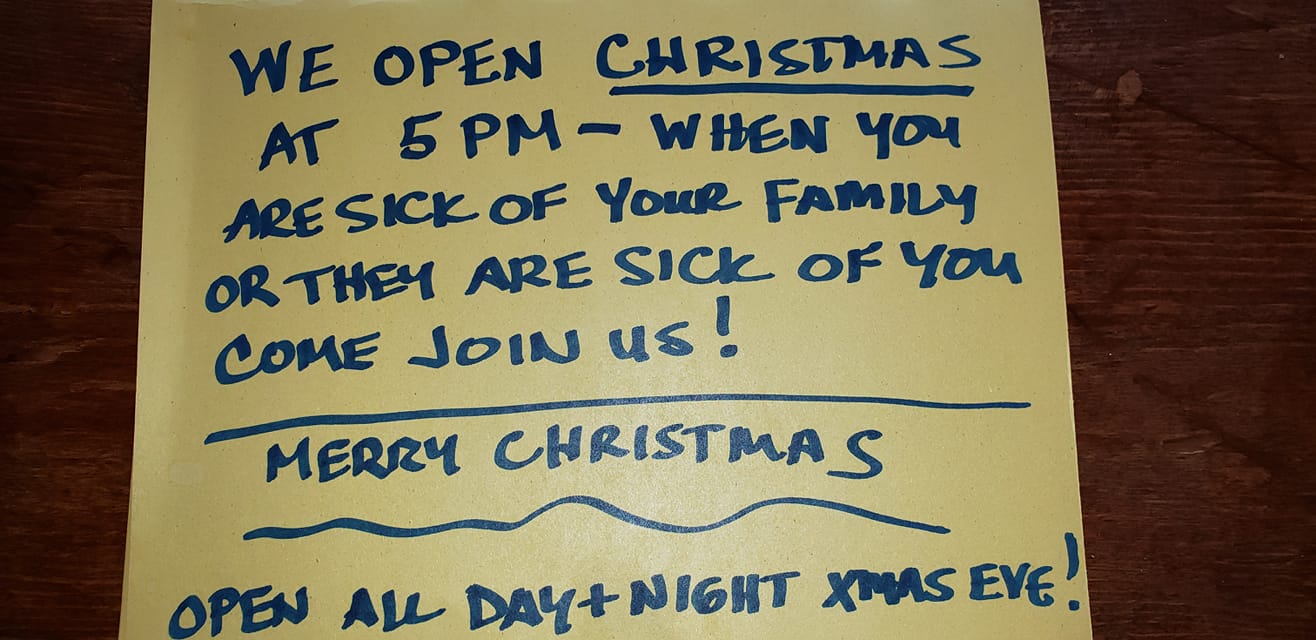 WE OPEN CHRISTMAS
AT 5 PM - WHEN YOU
ARE SICK OF YOUR FAMILY
OR THEY ARE SICK OF YOU
COME JOIN US!
MERRY CHRISTMAS
OPEN ALL DAY + NIGHT XMAS EVE!